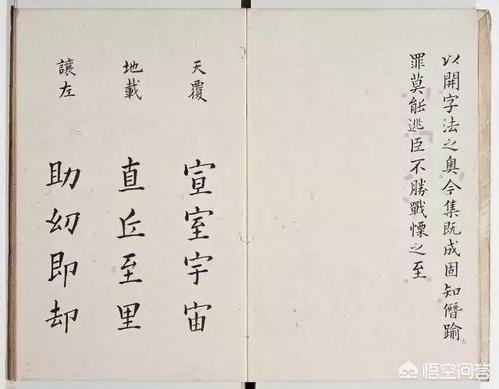 以開字法之奧今集既成固知僭踰
罪莫能逃臣不勝戰慄之至
天覆
宣室宇宙
地載
直丘至里
讓左
助幼即却
悟空问答